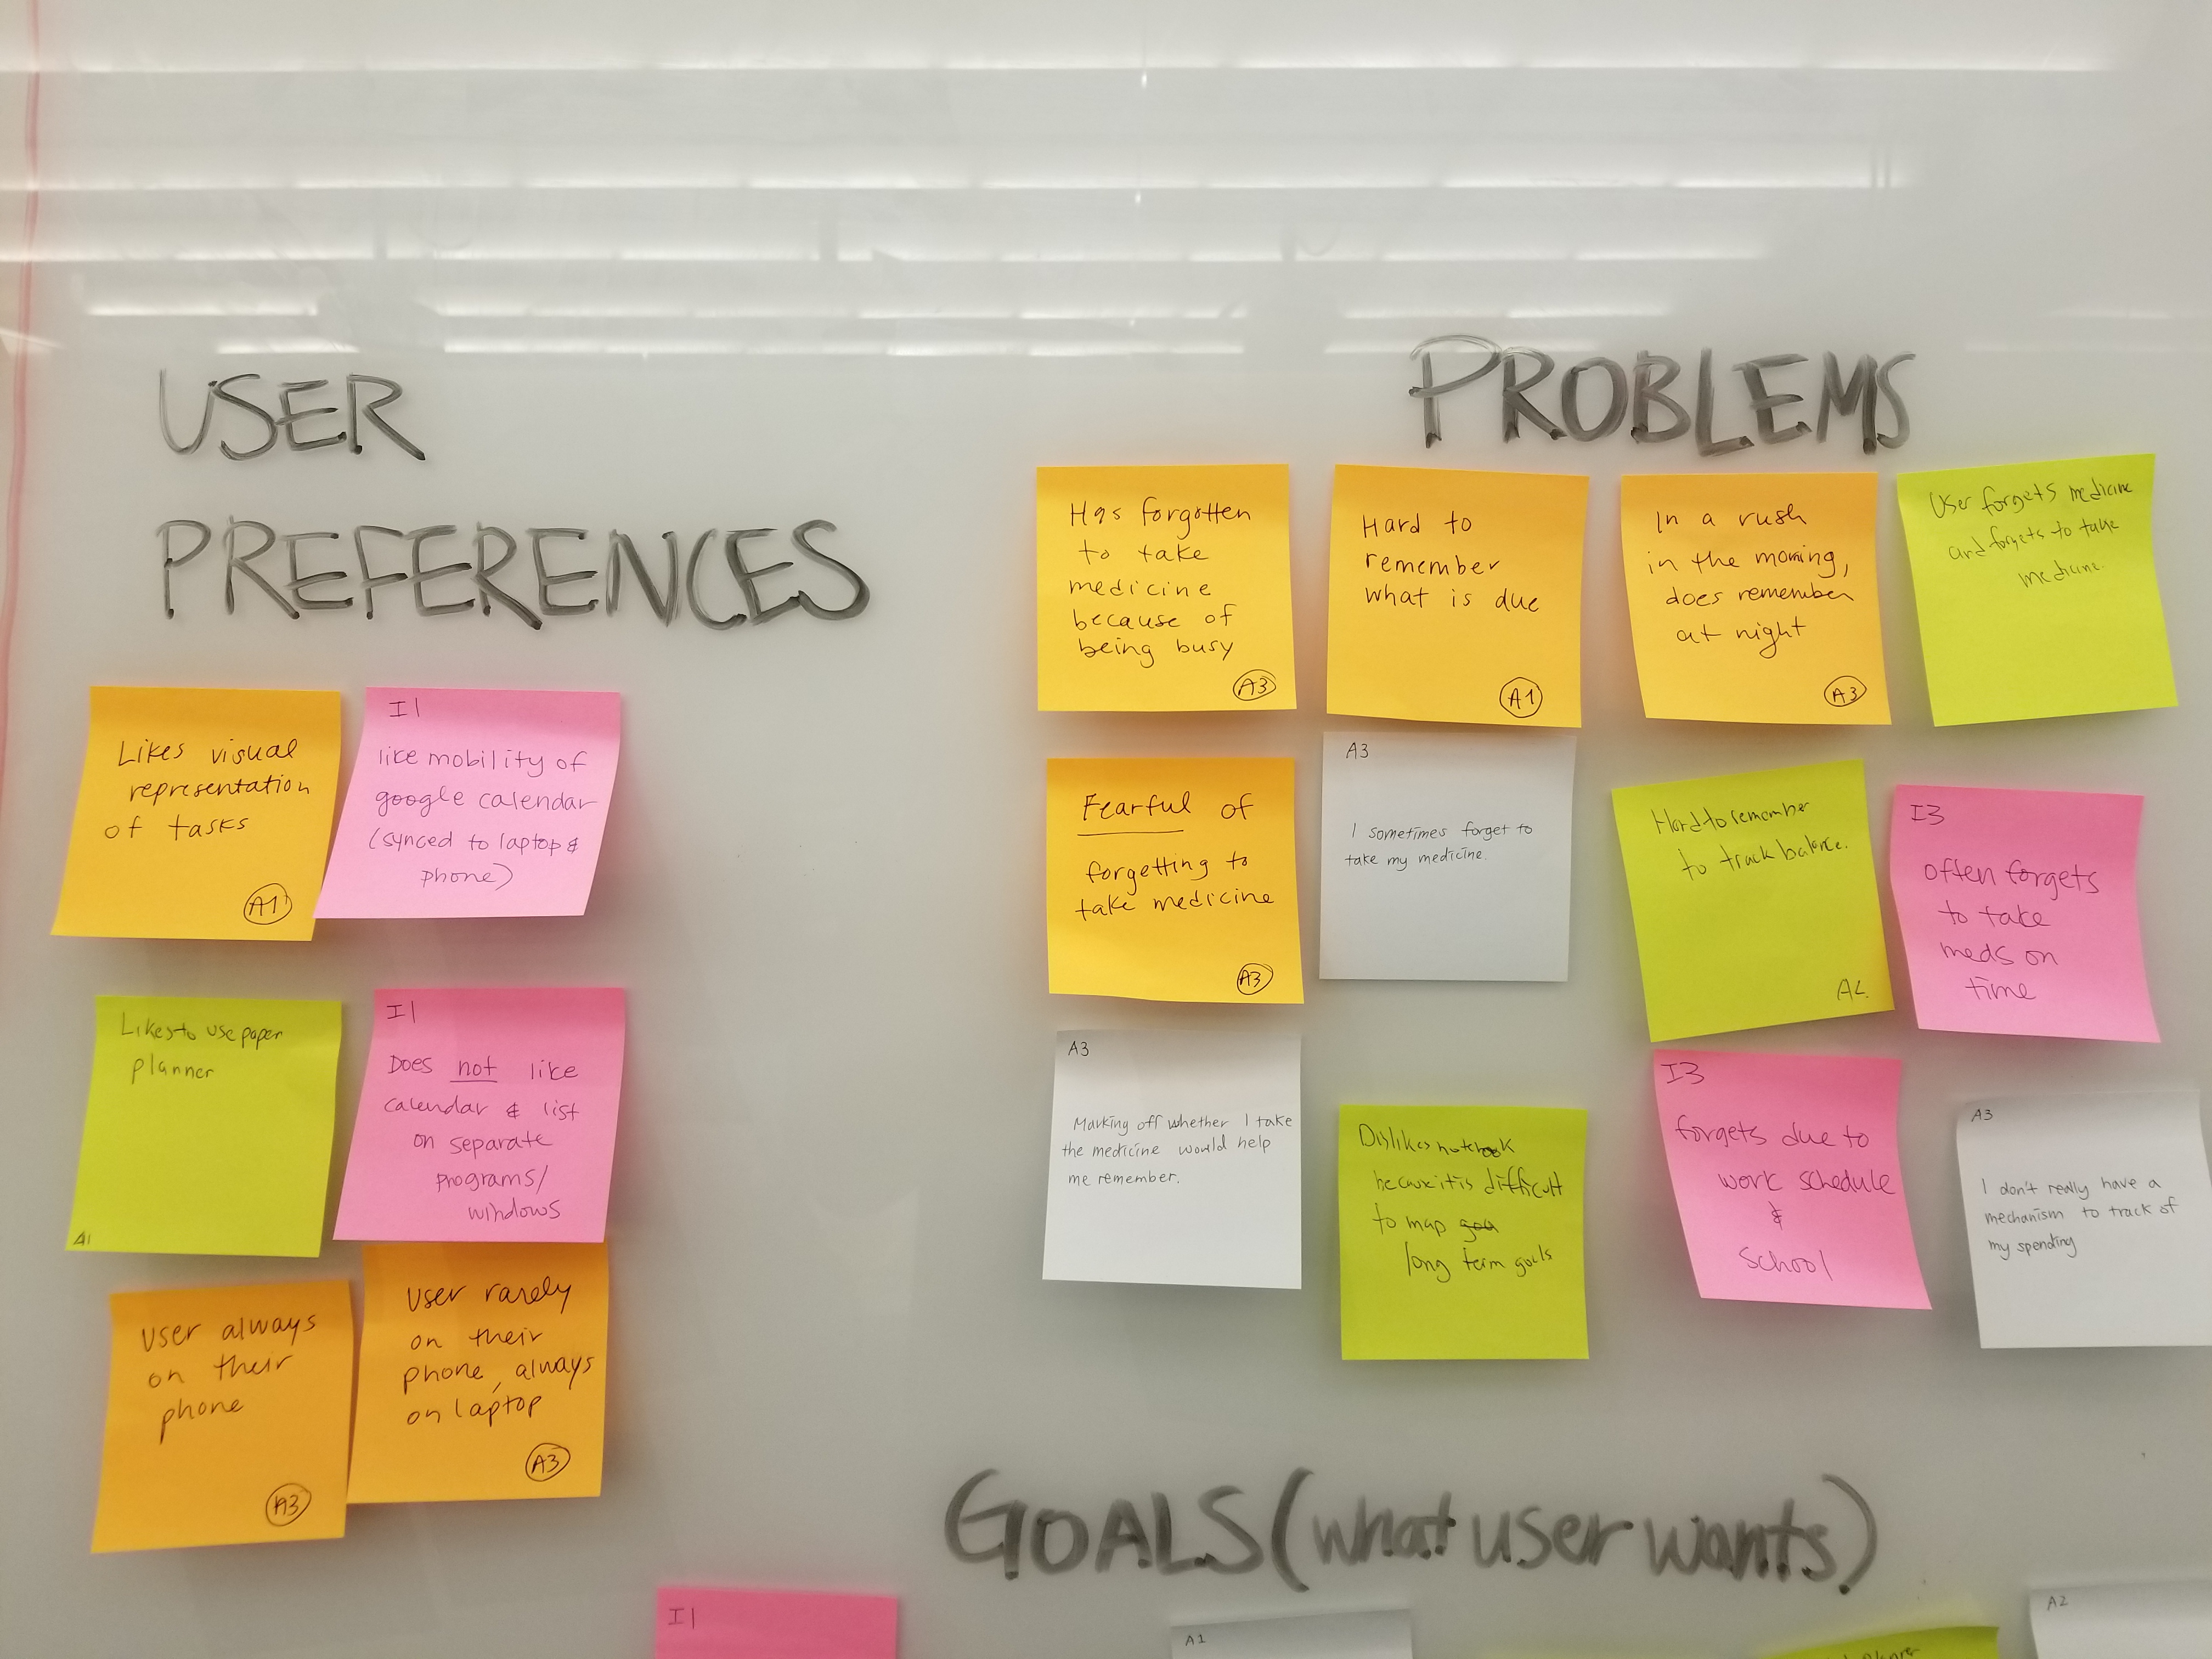 USER
PREFERENCES
Likes visual
representation
of tasks
A1
I1
like mobility of
google calendar
(synced to laptop &
phone)
Likes to use paper
planner
A1
I1
Does not like
calendar & list
on separate
programs/
windows
user always
on their
phone
A3
User rarely
on their
phone, always
on laptop
A3
PROBLEMS
Has forgotten
to take
medicine
because of
being busy
A3
Hard to
remember
what is due
A1
In a rush
in the morning,
does remember
at night
A3
User forgets medicine
and forgets to take
medicine.
Fearful of
forgetting to
take medicine
A3
A3
I sometimes forget to
take my medicine.
Hard to remember
to track balance.
I3
often forgets
to take
meds on
time
A3
Marking off whether I take
the medicine would help
me remember.
Dislikes notebook
because it is difficult
to map
long term goals
I3
forgets due to
work schedule
&
school
A3
I don't really have a
mechanism to track of
my spending
GOALS (what user wants)
I1
A1
A2